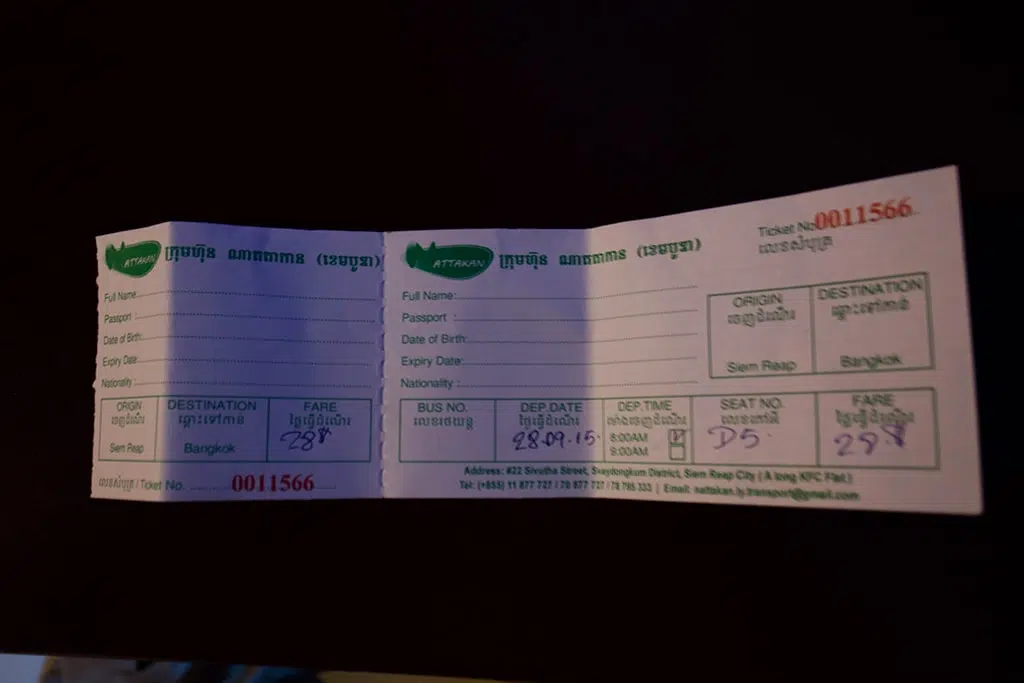 ATTAKAN ក្រុមហ៊ុន ណាតតាកាន (ខេមបូឌា)
Full Name:
Passport :
Date of Birth:
Expiry Date:
Nationality :
ORIGIN DESTINATION FARE
ចេញដំណើរ ឆ្ពោះទៅកាន់ ថ្លៃធ្វើដំណើរ
Siem Reap Bangkok 28$
លេខសំបុត្រ / Ticket No. 0011566
ATTAKAN ក្រុមហ៊ុន ណាតតាកាន (ខេមបូឌា)
Ticket No 0011566
លេខសំបុត្រ
Full Name:
Passport :
Date of Birth:
Expiry Date:
Nationality :
ORIGIN DESTINATION
ចេញដំណើរ ឆ្ពោះទៅកាន់
Siem Reap Bangkok
BUS NO. DEP.DATE DEP.TIME SEAT NO. FARE
លេខរថយន្ត ថ្ងៃធ្វើដំណើរ ម៉ោងចេញដំណើរ លេខកៅអី ថ្លៃធ្វើដំណើរ
28.09.15. 8:00AM D5. 28$
9:00AM
Address: #22 Sivutha Street, Svaydongkum District, Siem Reap City ( A long KFC Flat )
Tel: (+855) 11 877 727 / 70 877 727 / 78 795 333 | Email: nattakan.ly.transport@gmail.com